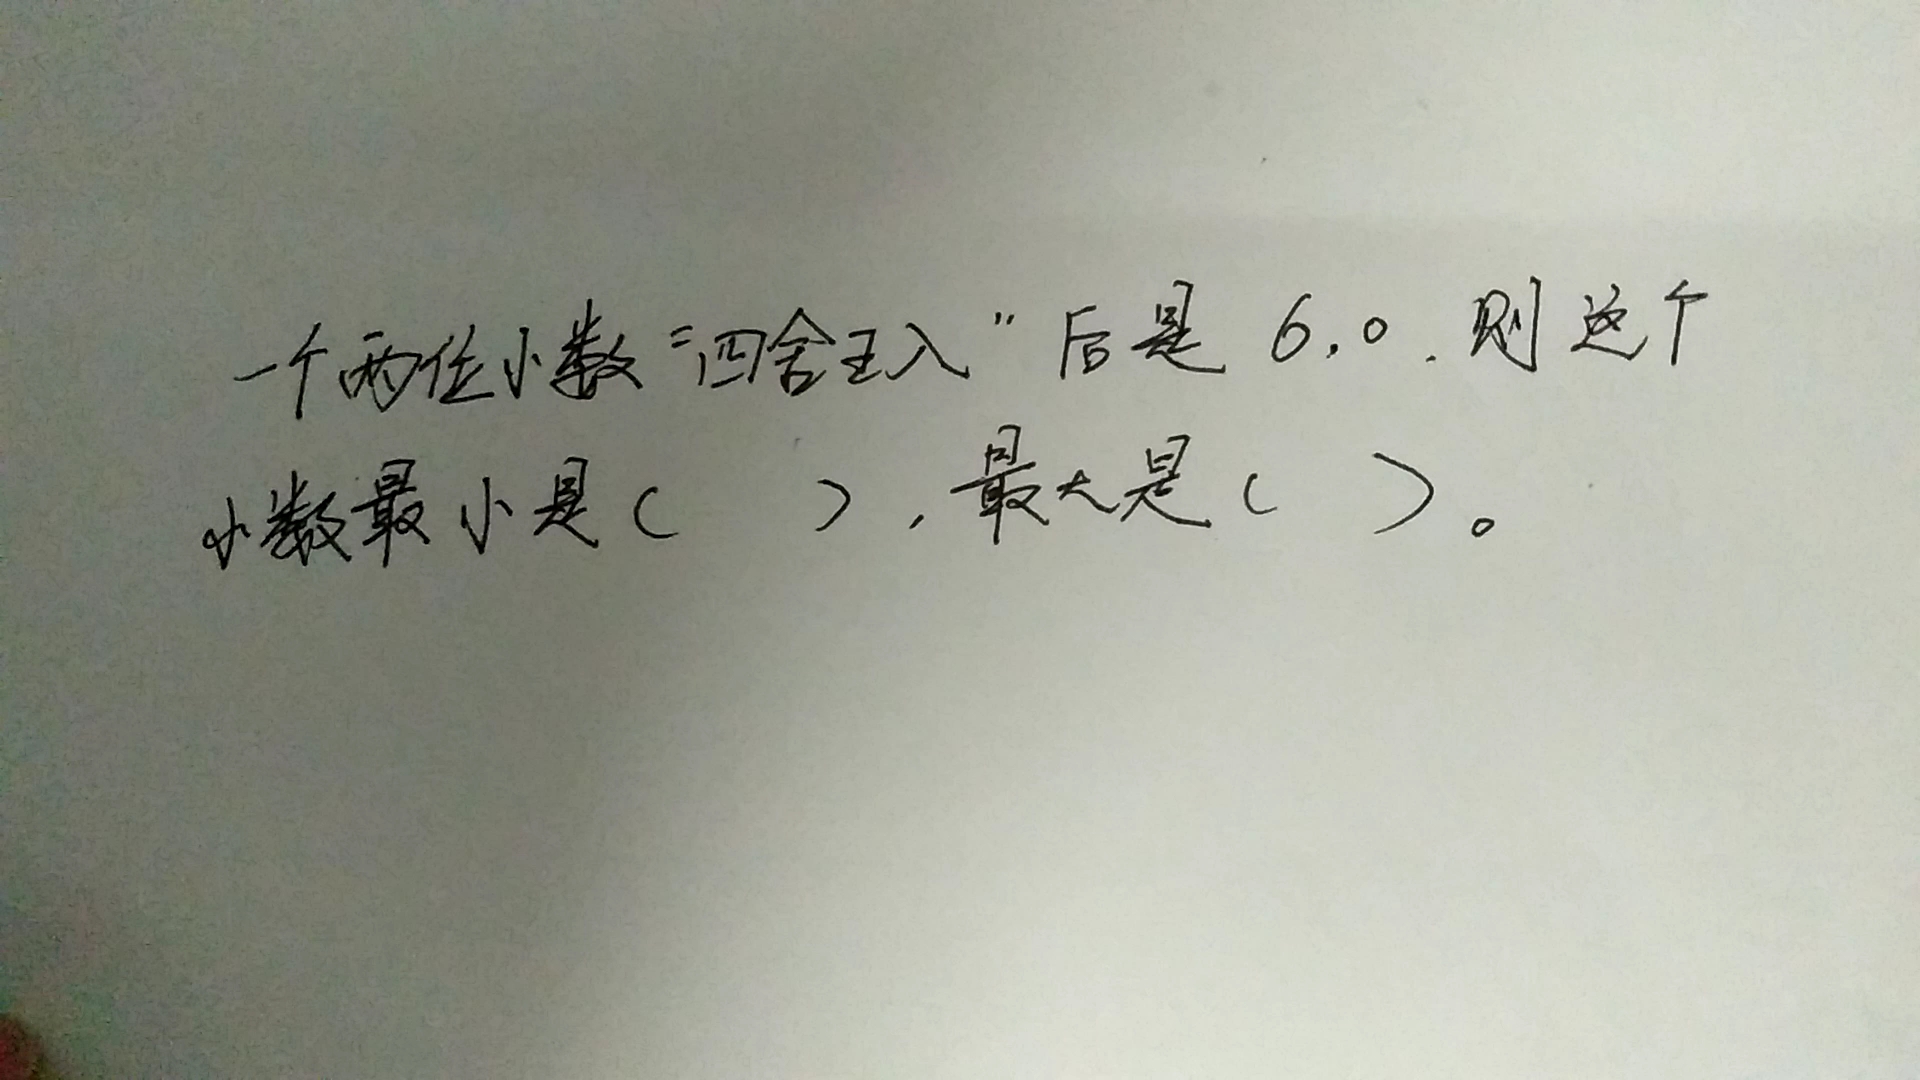 一个两位小数“四舍五入”后是6.0.则这个
小数最小是(    ),最大是(    )。